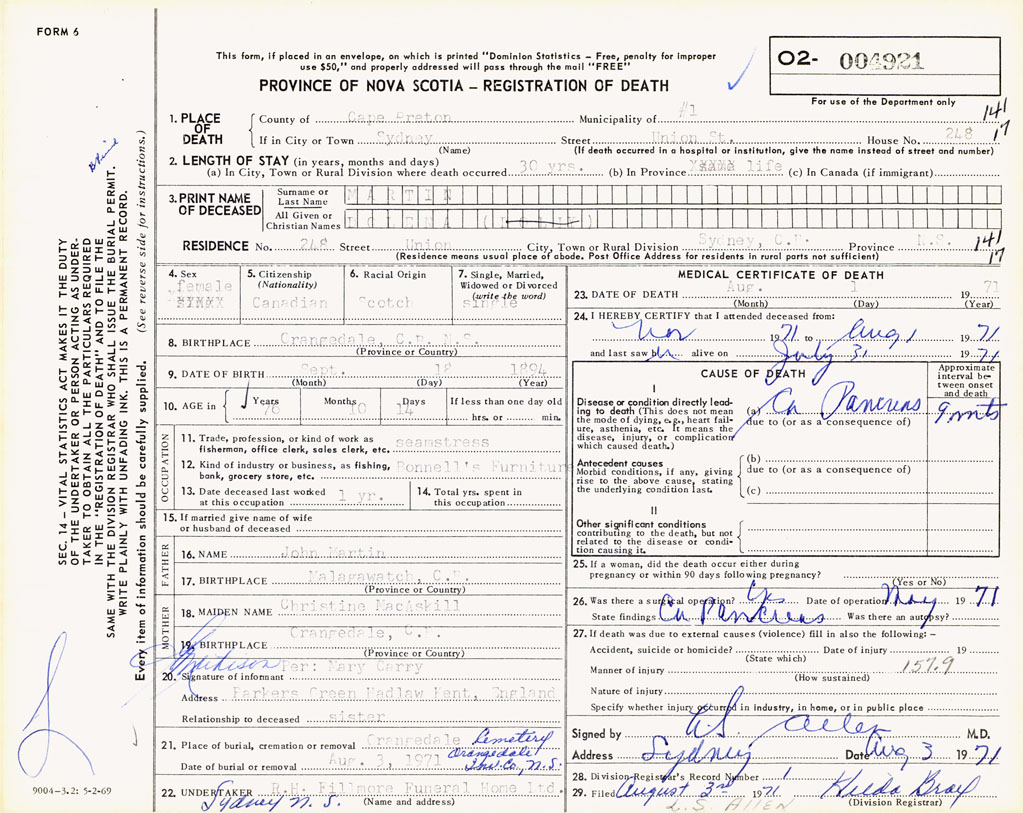 FORM 6
This form, if placed in an envelope, on which is printed "Dominion Statistics – Free, penalty for improper
use $50," and properly addressed will pass through the mail "FREE"
PROVINCE OF NOVA SCOTIA – REGISTRATION OF DEATH
O2- 004921
For use of the Department only
1. PLACE OF DEATH
County of Cape Breton Municipality of #1 141
If in City or Town Sydney Street Union St. House No. 248 17
(Name) (If death occurred in a hospital or institution, give the name instead of street and number)
2. LENGTH OF STAY (in years, months and days)
(a) In City, Town or Rural Division where death occurred 30 yrs. (b) In Province life (c) In Canada (if immigrant)
3. PRINT NAME OF DECEASED
Surname or Last Name MARTIN
All Given or Christian Names
RESIDENCE No. 248 Street Union City, Town or Rural Division Sydney, C.B. Province N.S. 141
(Residence means usual place of abode. Post Office Address for residents in rural parts not sufficient) 17
4. Sex
female
5. Citizenship
(Nationality)
Canadian
6. Racial Origin
Scotch
7. Single, Married,
Widowed or Divorced
(write the word)
single
8. BIRTHPLACE Orangedale, C.B. N.S.
(Province or Country)
9. DATE OF BIRTH Sept. 18 1894
(Month) (Day) (Year)
10. AGE in Years 76 Months 10 Days 14 If less than one day old
hrs. or min.
OCCUPATION
11. Trade, profession, or kind of work as seamstress
fisherman, office clerk, sales clerk, etc.
12. Kind of industry or business, as fishing, Bonnell's Furniture
bank, grocery store, etc.
13. Date deceased last worked 1 yr.
at this occupation
14. Total yrs. spent in
this occupation
15. If married give name of wife
or husband of deceased
FATHER
16. NAME John Martin
17. BIRTHPLACE Malagawatch, C.B.
(Province or Country)
MOTHER
18. MAIDEN NAME Christine MacAskill
19. BIRTHPLACE Orangedale, C.B.
(Province or Country)
20. Signature of informant Per: Mary Carry
Address Parkers Green Hadlaw Kent, England
Relationship to deceased sister
21. Place of burial, cremation or removal Orangedale Cemetery
Orangedale
Date of burial or removal Aug. 3, 1971 Inv. Co., N.S.
22. UNDERTAKER R.H. Fillmore Funeral Home ltd.
Sydney N.S. (Name and address)
MEDICAL CERTIFICATE OF DEATH
23. DATE OF DEATH Aug. 1 1971
(Month) (Day) (Year)
24. I HEREBY CERTIFY that I attended deceased from:
Nov 1971 to Aug 1 1971
and last saw her alive on July 31 1971
CAUSE OF DEATH
Approximate interval between onset and death
I
Disease or condition directly leading to death (This does not mean the mode of dying, e.g., heart failure, asthenia, etc. It means the disease, injury, or complication which caused death.)
(a) Ca Pancreas 9 mts
due to (or as a consequence of)
Antecedent causes
Morbid conditions, if any, giving rise to the above cause, stating the underlying condition last.
(b)
due to (or as a consequence of)
(c)
II
Other significant conditions
contributing to the death, but not related to the disease or condition causing it.
25. If a woman, did the death occur either during
pregnancy or within 90 days following pregnancy?
(Yes or No)
26. Was there a surgical operation? Yes Date of operation May 1971
State findings Ca Pancreas Was there an autopsy?
27. If death was due to external causes (violence) fill in also the following: –
Accident, suicide or homicide? Date of injury 19
(State which)
Manner of injury 157.9
(How sustained)
Nature of injury
Specify whether injury occurred in industry, in home, or in public place
Signed by M.D.
Address Sydney Date Aug 3 1971
28. Division Registrar's Record Number 1
29. Filed August 3rd 1971 Hilda Bray
L.S. ALLEN (Division Registrar)
SEC. 14 – VITAL STATISTICS ACT MAKES IT THE DUTY
OF THE UNDERTAKER OR PERSON ACTING AS UNDER-
TAKER TO OBTAIN ALL THE PARTICULARS REQUIRED
IN THE "REGISTRATION OF DEATH" AND TO FILE THE
SAME WITH THE DIVISION REGISTRAR WHO SHALL ISSUE THE BURIAL PERMIT.
WRITE PLAINLY WITH UNFADING INK. THIS IS A PERMANENT RECORD.
Every item of information should be carefully supplied. (See reverse side for instructions.)
9004-3.2: 5-2-69